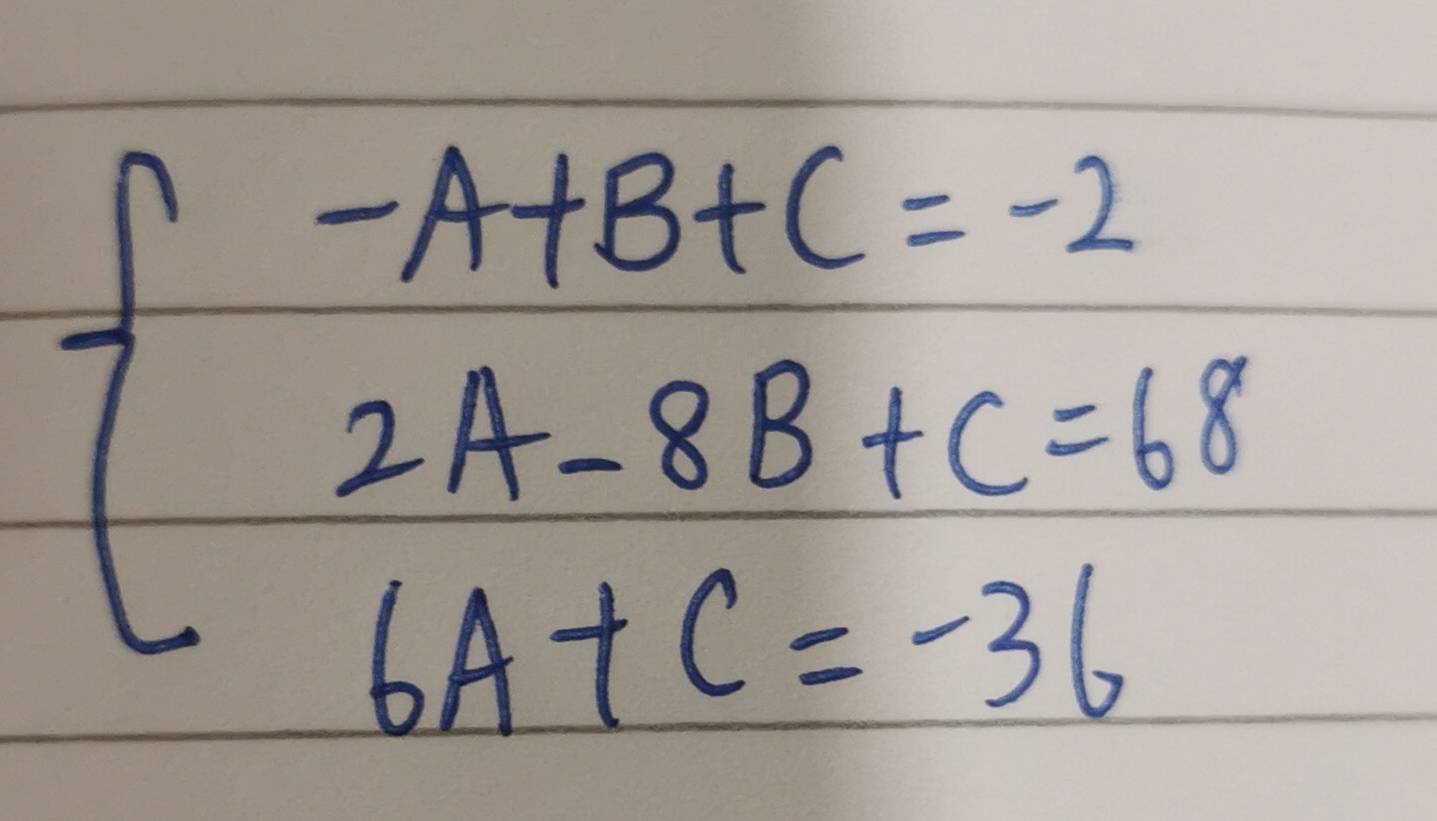 -A+B+C=-2
2A-8B+C=68
6A+C=-36